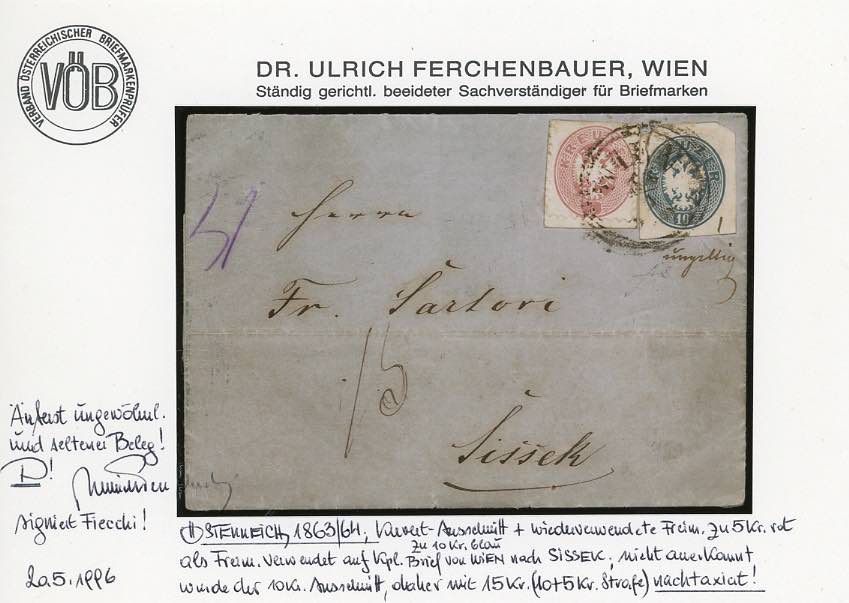 VERBAND ÖSTERREICHISCHER BRIEFMARKENPRÜFER
VÖB
DR. ULRICH FERCHENBAUER, WIEN
Ständig gerichtl. beeideter Sachverständiger für Briefmarken
KREUZER
KREUZER
10
WIEN
ungiltig
Herrn
Fr. Sartori
15
Sissek
Äußerst ungewöhnl.
und seltener Beleg!
signiert Fiecchi!
20.5.1996
ÖSTERREICH, 1863/64, Kuvert-Ausschnitt + wiederverwendete Freim. zu 5 Kr. rot
zu 10 Kr. blau
als Freim. verwendet auf kpl. Brief von WIEN nach SISSEK; nicht anerkannt
wurde der 10 Kr. Ausschnitt, daher mit 15 Kr. (10+5 Kr. Strafe) nachtaxiert!